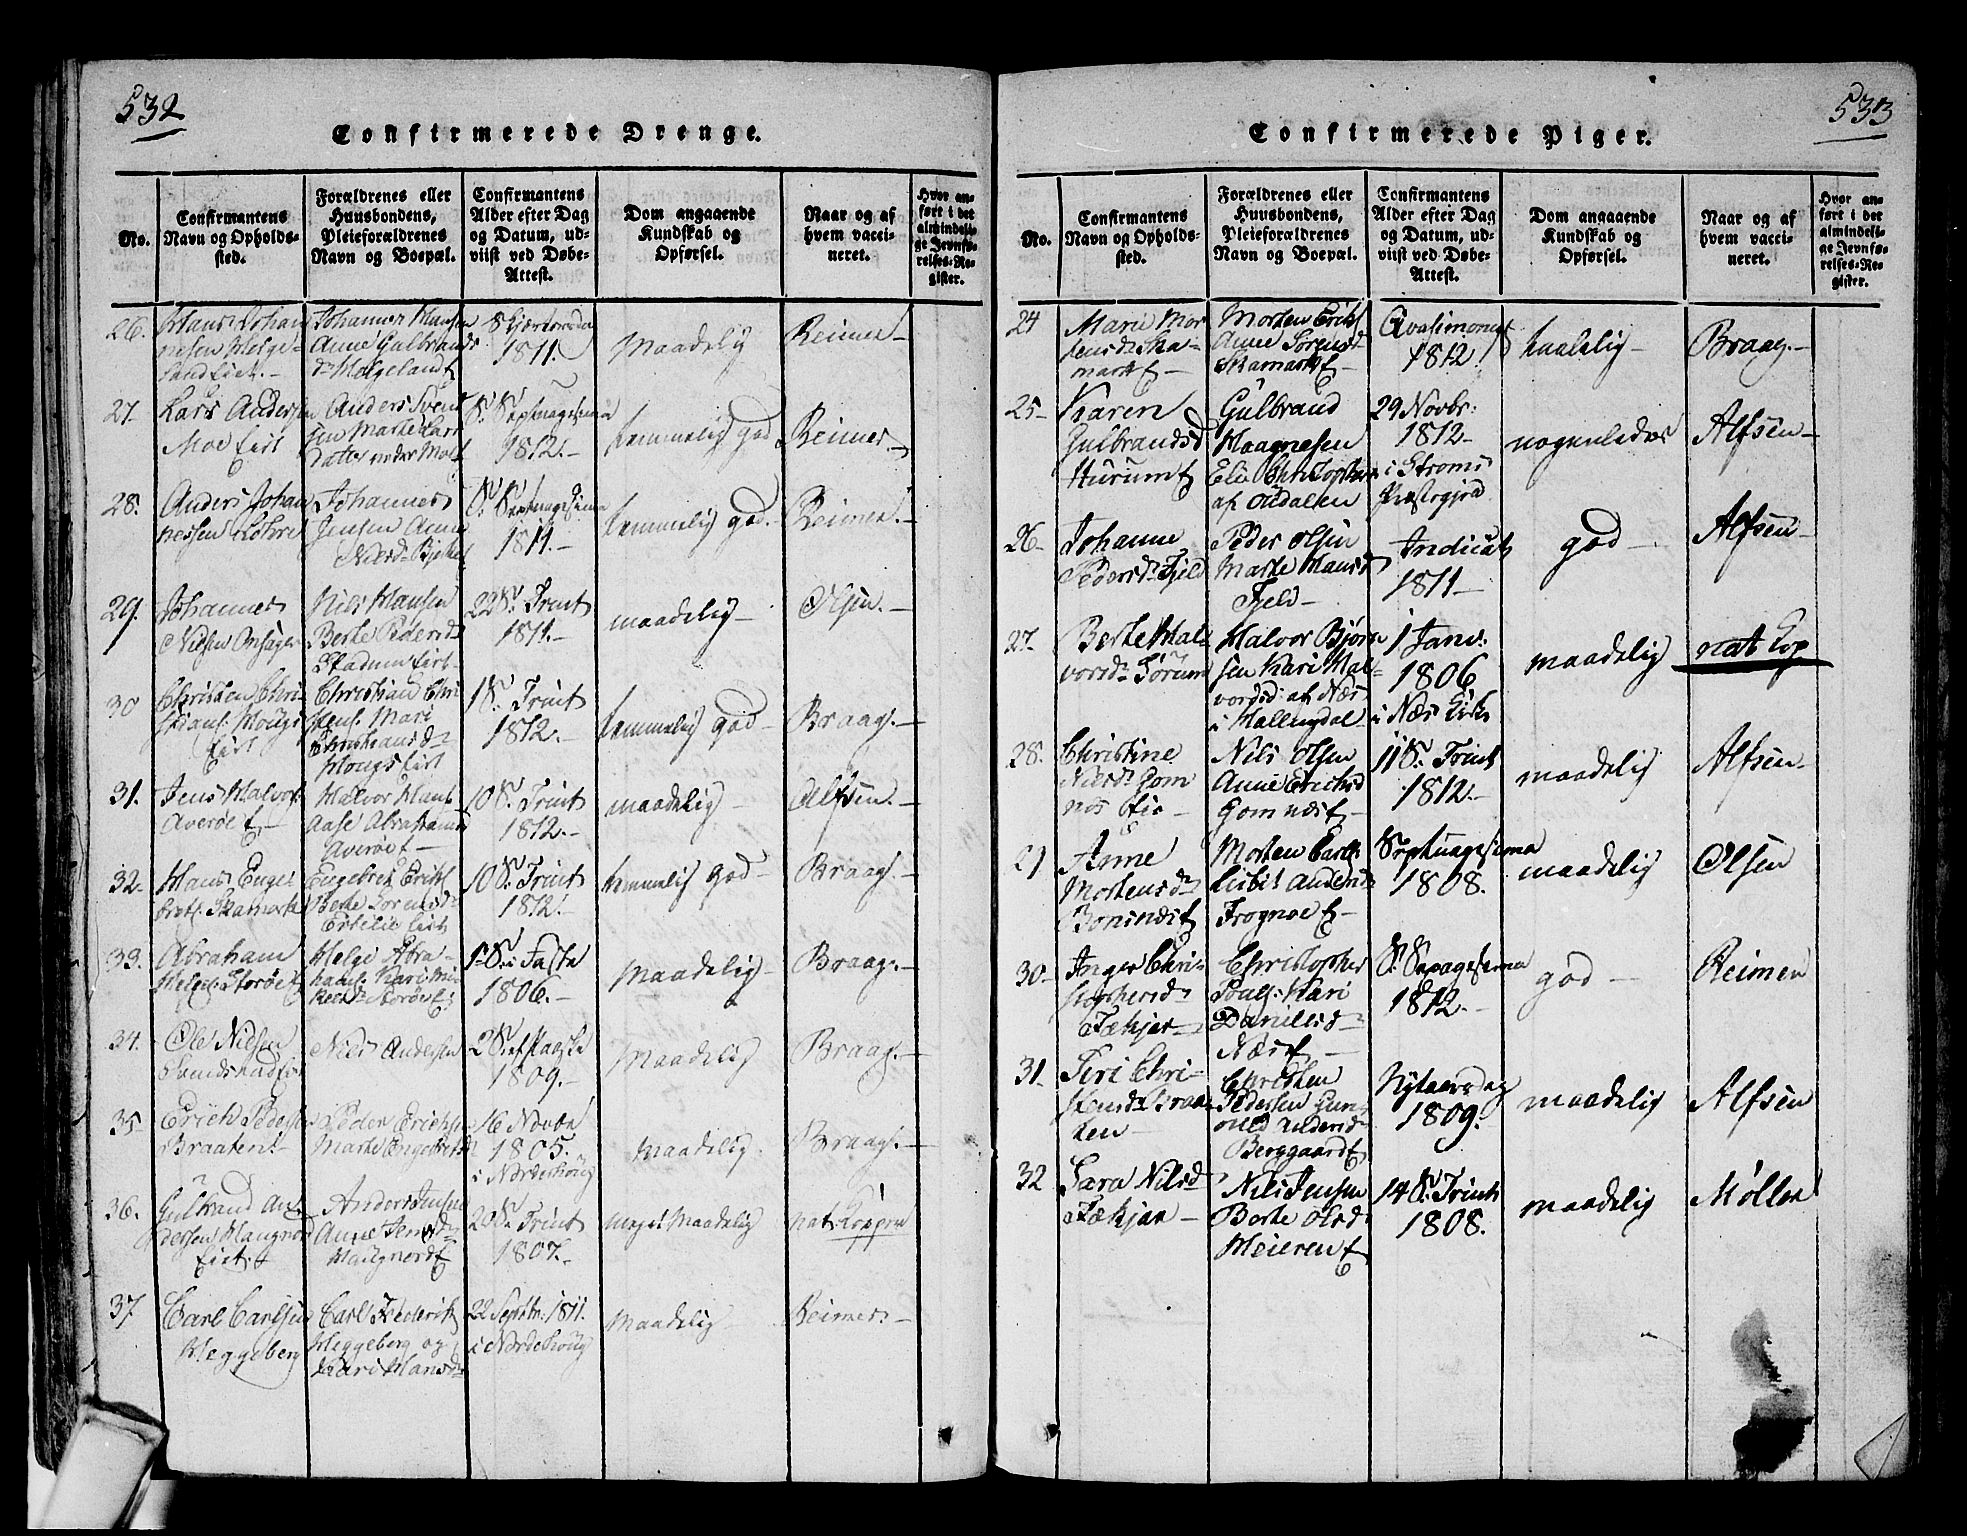 532
Confirmerede Drenge.
No.
Confirmantens
Navn og Opholds-
sted.
Forældrenes eller
Huusbondens,
Pleieforældrenes
Navn og Boepæl.
Confirmantens
Alder efter Dag
og Datum, ud-
viist ved Døbe-
Attest.
Dom angaaende
Kundskab og
Opførsel.
Naar og af
hvem vacci-
neret.
Hvor an-
ført i det
almindeli-
ge Jevnfø-
relses-Re-
gister.
26.
Hans Johan
nesen Helge-
land
Johannes Hansen
Anne Gulbrands
d. Helgeland
1811.
Maadelig
Reimer
27.
Lars Andersen
Moe
Anders Svend
sen Marte Lars
datter
S. Septuagesima
1812.
temmelig god
Reimers
28.
Anders Johan
nessen
Johannes
Jensen Anne
Nielsd.
S. Septuagesima
1811.
temmelig god.
Reimer.
29.
Johannes
Nielsen Onsager
Nils Hansen
Berthe Pedersd
Stadum
22 S. Trinit
1811.
maadelig
Olsen.
30
Christen Chri
stians. Houg
Christian Chri
stens. Mari
Christiansd
Hougs
1 S. Trinit
1812.
temmelig god
Braag.
31.
Jens Halvors
Averøe
Halvor Hans
Aase Abrahams
Averøe
10 S. Trinit
1812.
maadelig
Alfsen.
32.
Hans Enge
brets. Skamark
Engebret Eriks
Berte Sorensd
10 S. Trinit
1812.
temmelig god
Braag.
33.
Abraham
Helges. Storøe
Helge Abra-
hams. Kari
Storøe
1 S. i Faste
1806.
Maadelig
Braag.
34.
Ole Nielsen
Nils Andersen
2 S. ef Paaske
1809.
Maadelig
Braag.
35.
Erich Peders
Braaten.
Peder Erichsen
Marte Engebretsd
16 Novbr
1805.
i Norderhoug
Maadelig.
Braag.
36.
Gulbrand An
dersen Haugner
Anders Jensen
Anne Jensd
Haugner
20 S. Trinit
1807.
meget Maadelig
nat: Kopper
37
Carl Carlsen
Heggeberg
Carl Frederik
Heggeberg og
Kari Hansd
22 Septbr: 1811.
i Norderhoug
maadelig
Reimers
533
Confirmerede Piger.
No.
Confirmantens
Navn og Opholds-
sted.
Forældrenes eller
Huusbondens,
Pleieforældrenes
Navn og Boepæl.
Confirmantens
Alder efter Dag
og Datum, ud-
viist ved Døbe-
Attest.
Dom angaaende
Kundskab og
Opførsel.
Naar og af
hvem vacci-
neret.
Hvor an-
ført i det
almindeli-
ge Jevnfø-
relses-Re-
gister.
24
Marie Mor
tensd. Ska-
mark
Morten Eriks
Anne Sorensd
Skamark
1812
Braag.
25
Karen
Gulbrandsd
Hurum
Gulbrand
Haagnesen
Elie Christophers
af Oudalen
29 Novbr:
1812
i Strøms
Præstegjeld
nogenledes
Alfsen
26
Johanne
Pedersd. Fjeld
Peder Olsen
Marte Hansd
Fjeld
1811
god
Alfsen
27.
Berte Hal
vorsd. Sørum
Halvor Bjørn
sen Kari Hal-
vorsd: af Næs
i Hallingdal
1 Janv.
1806
i Næs Kirke
maadelig
nat Kop
28.
Christine
Nielsd. Gom
næs
Nils Olsen
Anne Erichsd
Gomnæs
11 S. Trinit
1812.
maadelig
Alfsen
29
Anne
Mortensd
Bonsnæs
Morten Carls.
Lisbet Andersd
Frognøe
Septuagesima
1808.
maadelig
Olsen
30
Inger Chri-
stophersd
Fækjær
Christopher
Pouls. Kari
Danielsd
Næs
1812.
god
Reimer
31
Siri Chri-
stensd. Braa-
ten
Christen
Pedersen Gun
nild Andersd
Berggaard
Nytaarsdag
1809.
maadelig
Alfsen
32
Sara Nilsd
Fækjær
Nils Jensen
Berte Olsd
Meieren
14 S. Trinit
1808.
maadelig
Møller